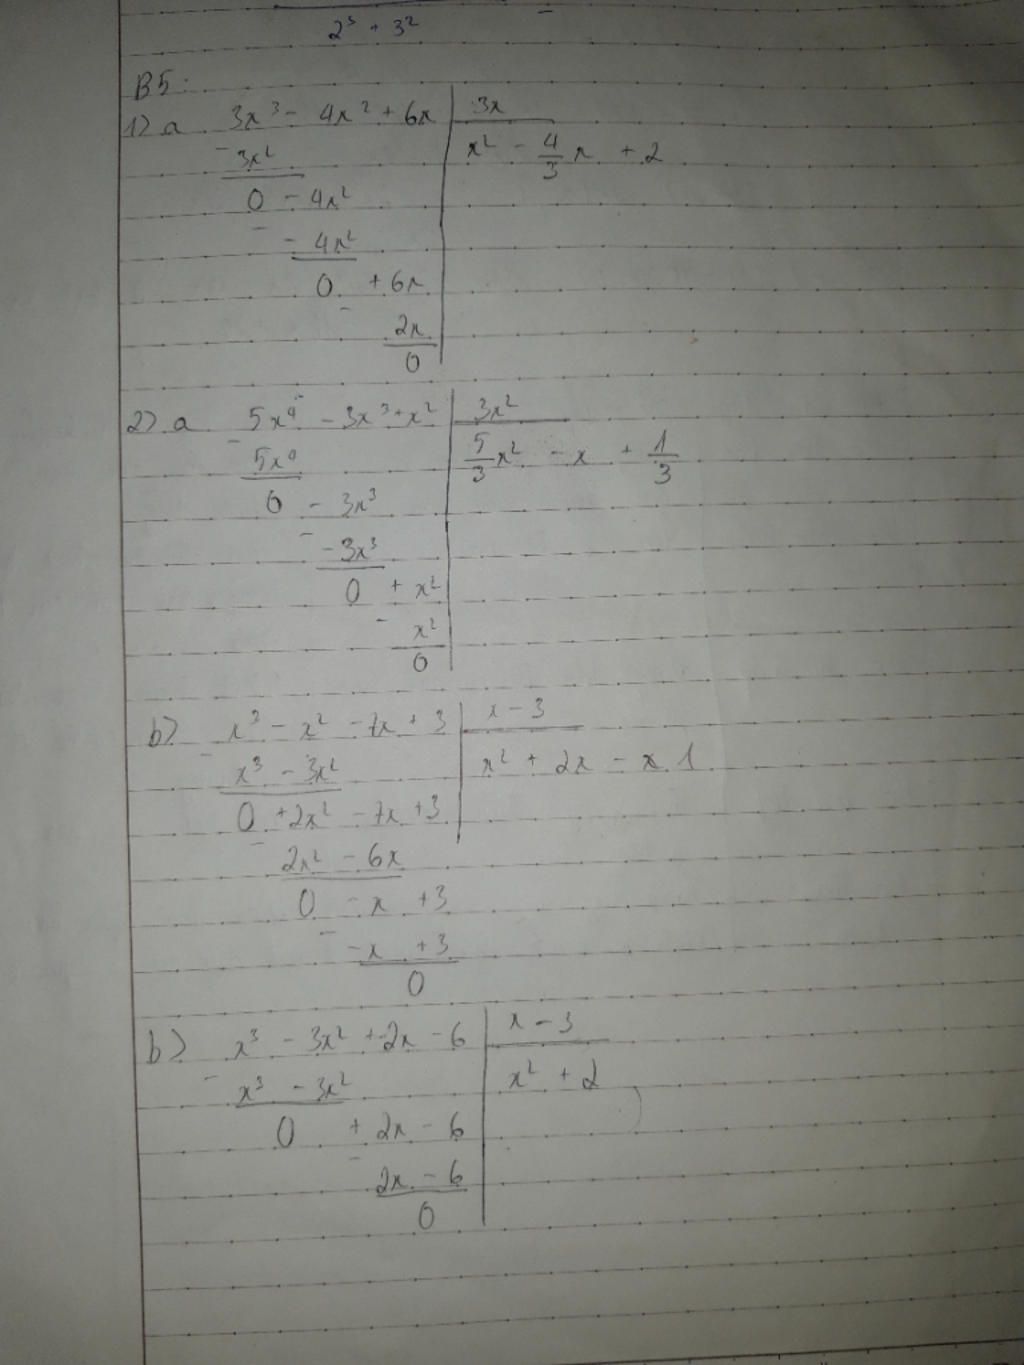 2³ + 3²
B5:
1) a 3x³ - 4x² + 6x | 3x
- 3x² | x² - 4/3 x + 2
0 - 4x²
- - 4x²
0 + 6x
- 2x
0
2) a 5x⁴ - 3x³ + x² | 3x²
- 5x⁴ | 5/3 x² - x + 1/3
0 - 3x³
- - 3x³
0 + x²
- x²
0
b) x³ - x² - 7x + 3 | x - 3
- x³ - 3x² | x² + 2x - 1
0 + 2x² - 7x + 3
- 2x² - 6x
0 - x + 3
- - x + 3
0
b) x³ - 3x² + 2x - 6 | x - 3
- x³ - 3x² | x² + 2
0 + 2x - 6
- 2x - 6
0